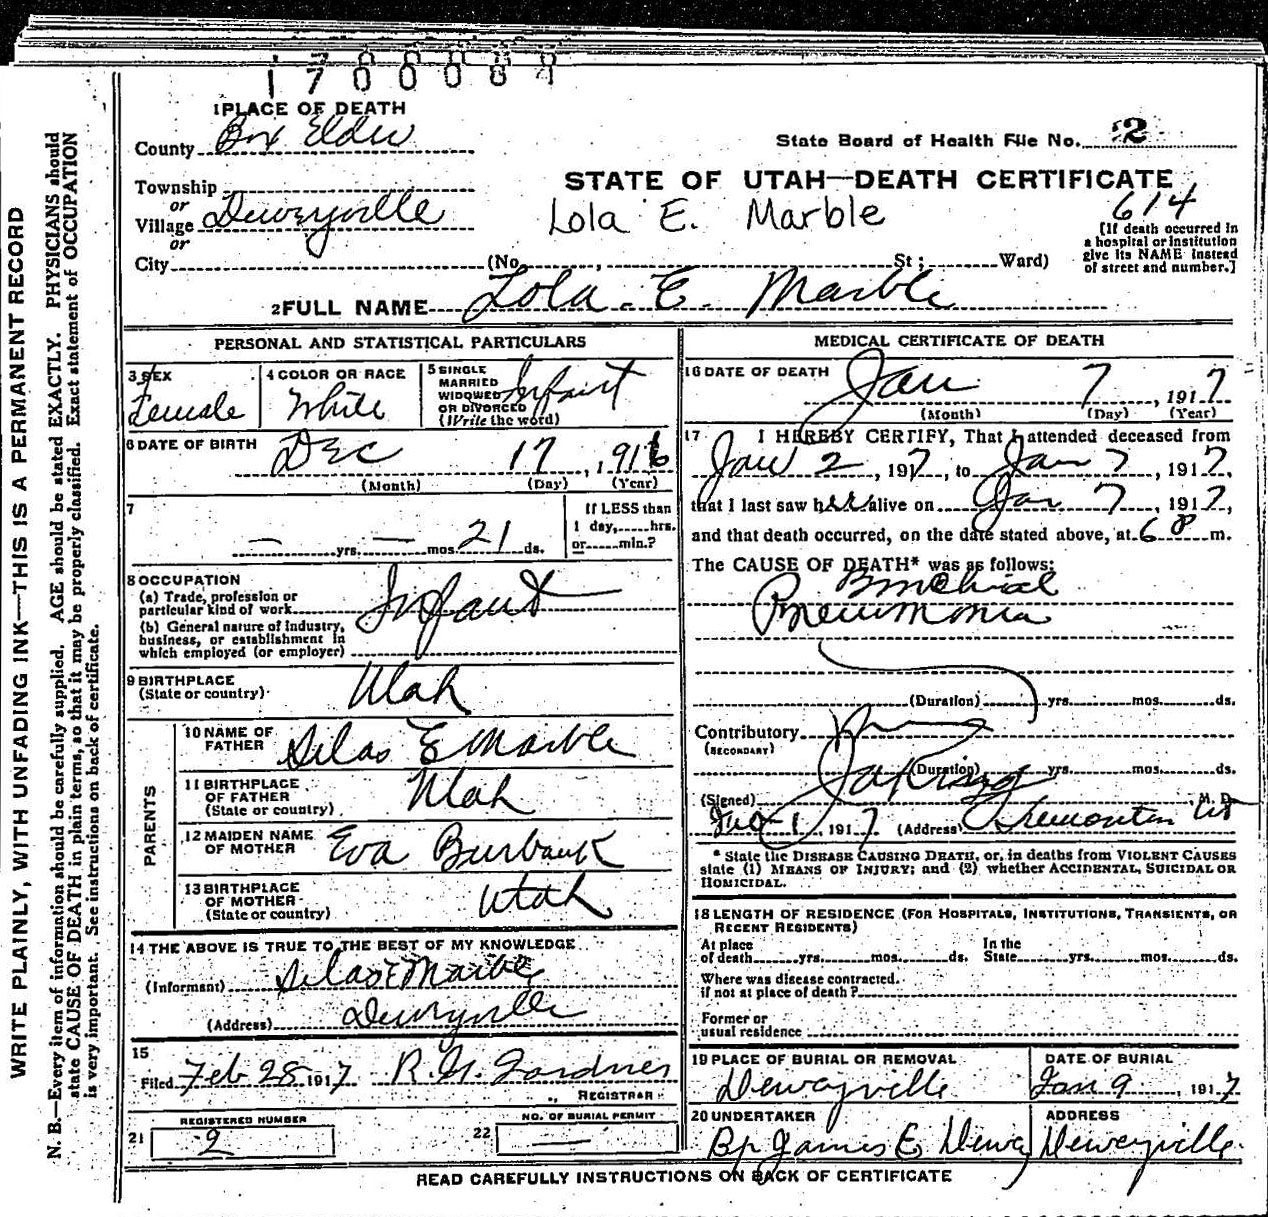 1700084
1 PLACE OF DEATH
County Box Elder
State Board of Health File No. 2
Township
or
Village Deweyville
or
City (No. , St ; Ward)
STATE OF UTAH—DEATH CERTIFICATE
Lola E. Marble
614
[If death occurred in
a hospital or institution
give its NAME instead
of street and number.]
2 FULL NAME Lola. E. Marble
PERSONAL AND STATISTICAL PARTICULARS
3 SEX
Female
4 COLOR OR RACE
White
5 SINGLE
MARRIED
WIDOWED
OR DIVORCED
(Write the word)
Infant
6 DATE OF BIRTH Dec 17, 1916
(Month) (Day) (Year)
7
— yrs. — mos. 21 ds.
If LESS than
1 day,.....hrs.
or......min.?
8 OCCUPATION
(a) Trade, profession or
particular kind of work
(b) General nature of industry,
business, or establishment in
which employed (or employer)
Infant
9 BIRTHPLACE
(State or country)
Utah
PARENTS
10 NAME OF
FATHER
Silas E Marble
11 BIRTHPLACE
OF FATHER
(State or country)
Utah
12 MAIDEN NAME
OF MOTHER
Eva Burbank
13 BIRTHPLACE
OF MOTHER
(State or country)
Utah
14 THE ABOVE IS TRUE TO THE BEST OF MY KNOWLEDGE
(Informant) Silas E Marble
(Address) Deweyville
15
Filed Feb 28 1917 R. H. Gardner
REGISTRAR
REGISTERED NUMBER
21 2
NO. OF BURIAL PERMIT
22 —
MEDICAL CERTIFICATE OF DEATH
16 DATE OF DEATH Jan 7, 1917
(Month) (Day) (Year)
17 I HEREBY CERTIFY, That I attended deceased from
Jan 2, 1917, to Jan 7, 1917,
that I last saw her alive on Jan 7, 1917,
and that death occurred, on the date stated above, at 6 P m.
The CAUSE OF DEATH* was as follows:
Bronchial
Pneumonia
(Duration) yrs. mos. ds.
Contributory
(SECONDARY)
(Duration) yrs. mos. ds.
(Signed) M. D.
1, 1917 (Address) Tremonton Ut
* State the DISEASE CAUSING DEATH, or, in deaths from VIOLENT CAUSES
state (1) MEANS OF INJURY; and (2) whether ACCIDENTAL, SUICIDAL OR
HOMICIDAL.
18 LENGTH OF RESIDENCE (FOR HOSPITALS, INSTITUTIONS, TRANSIENTS, OR
RECENT RESIDENTS)
At place
of death yrs. mos. ds.
In the
State yrs. mos. ds.
Where was disease contracted.
if not at place of death?
Former or
usual residence
19 PLACE OF BURIAL OR REMOVAL
Deweyville
DATE OF BURIAL
Jan 9, 1917
20 UNDERTAKER
Bp James E Dewey
ADDRESS
Deweyville
READ CAREFULLY INSTRUCTIONS ON BACK OF CERTIFICATE
WRITE PLAINLY, WITH UNFADING INK—THIS IS A PERMANENT RECORD
N. B.—Every item of information should be carefully supplied. AGE should be stated EXACTLY. PHYSICIANS should
state CAUSE OF DEATH in plain terms, so that it may be properly classified. Exact statement of OCCUPATION
is very important. See instructions on back of certificate.